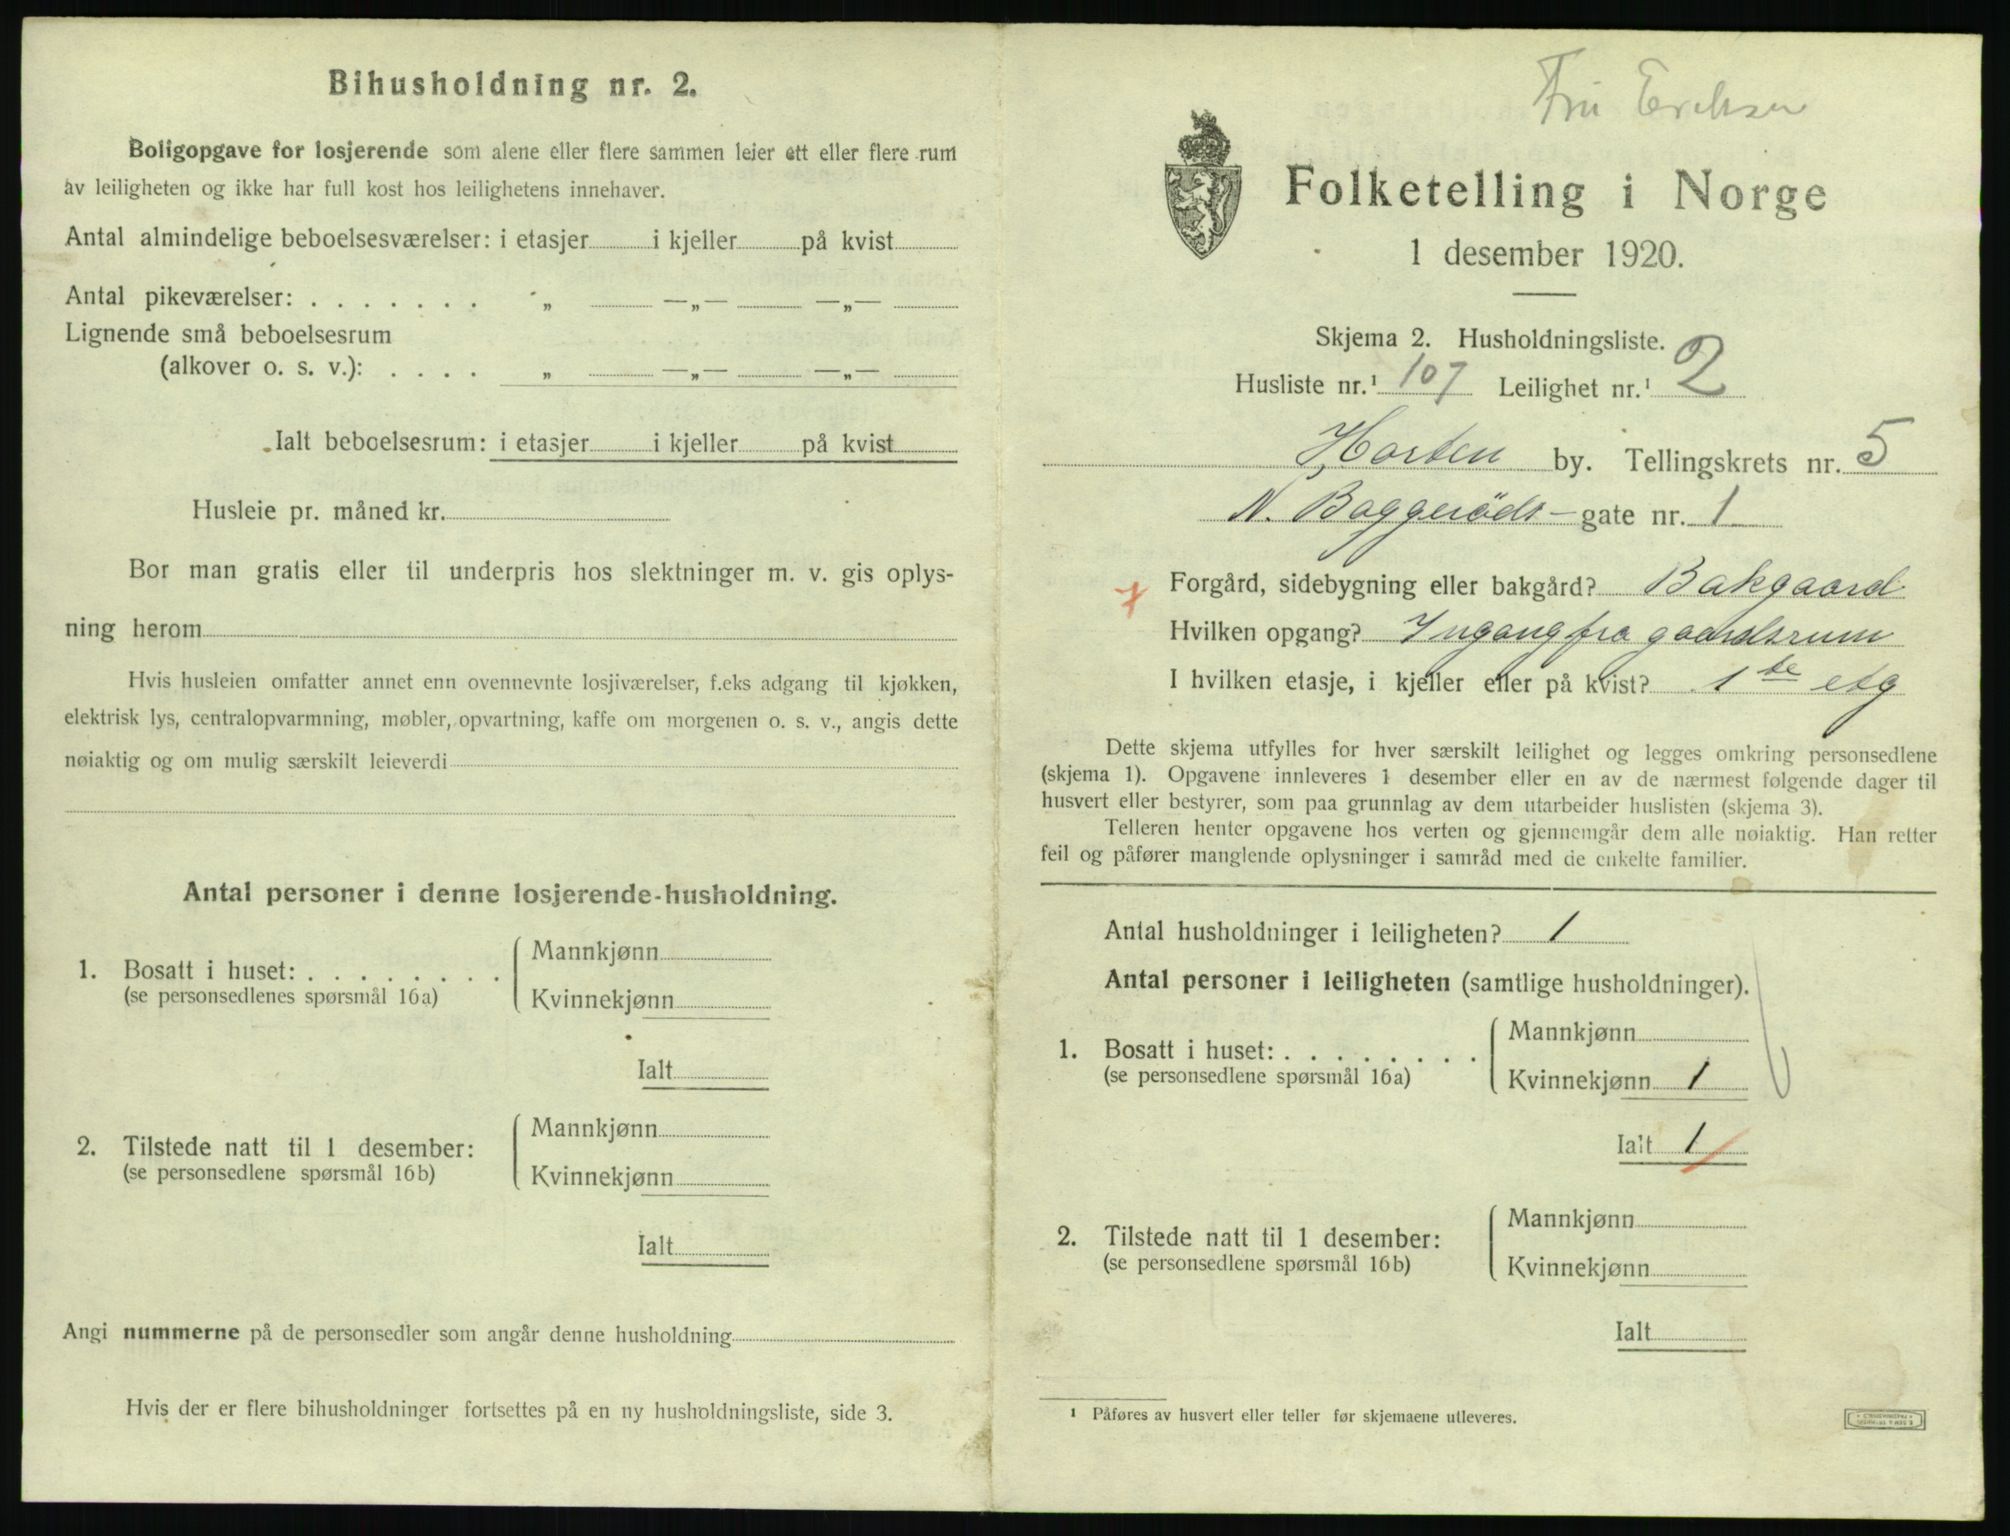 Bihusholdning nr. 2.
Boligopgave for losjerende som alene eller flere sammen leier ett eller flere rum
av leiligheten og ikke har full kost hos leilighetens innehaver.
Antal almindelige beboelsesværelser: i etasjer i kjeller på kvist
Antal pikeværelser: . . . . . . . „ —„— —„—
Lignende små beboelsesrum
(alkover o. s. v.): . . . . „ —„— —„—
Ialt beboelsesrum: i etasjer i kjeller på kvist
Husleie pr. måned kr.
Bor man gratis eller til underpris hos slektninger m. v. gis oplys-
ning herom
Hvis husleien omfatter annet enn ovennevnte losjiværelser, f.eks adgang til kjøkken,
elektrisk lys, centralopvarmning, møbler, opvartning, kaffe om morgenen o. s. v., angis dette
nøiaktig og om mulig særskilt leieverdi
Antal personer i denne losjerende-husholdning.
1. Bosatt i huset: . . . . . . . .
(se personsedlenes spørsmål 16a)
Mannkjønn
Kvinnekjønn
Ialt
2. Tilstede natt til 1 desember:
(se personsedlene spørsmål 16b)
Mannkjønn
Kvinnekjønn
Ialt
Angi nummerne på de personsedler som angår denne husholdning
Hvis der er flere bihusholdninger fortsettes på en ny husholdningsliste, side 3.
Fru Eriksen
Folketelling i Norge
1 desember 1920.
Skjema 2. Husholdningsliste.
Husliste nr.¹ 107 Leilighet nr.¹ 2
Horten by. Tellingskrets nr. 5
N. Baggeröds- gate nr. 1
Forgård, sidebygning eller bakgård? Bakgaard
Hvilken opgang? Ingang fra gaardsrum
I hvilken etasje, i kjeller eller på kvist? 1te etg
Dette skjema utfylles for hver særskilt leilighet og legges omkring personsedlene
(skjema 1). Opgavene innleveres 1 desember eller en av de nærmest følgende dager til
husvert eller bestyrer, som paa grunnlag av dem utarbeider huslisten (skjema 3).
Telleren henter opgavene hos verten og gjennemgår dem alle nøiaktig. Han retter
feil og påfører manglende oplysninger i samråd med de enkelte familier.
Antal husholdninger i leiligheten? 1
Antal personer i leiligheten (samtlige husholdninger).
1. Bosatt i huset: . . . . . . . .
(se personsedlene spørsmål 16a)
Mannkjønn
Kvinnekjønn 1
Ialt 1
2. Tilstede natt til 1 desember:
(se personsedlene spørsmål 16b)
Mannkjønn
Kvinnekjønn
Ialt
¹ Påføres av husvert eller teller før skjemaene utleveres.